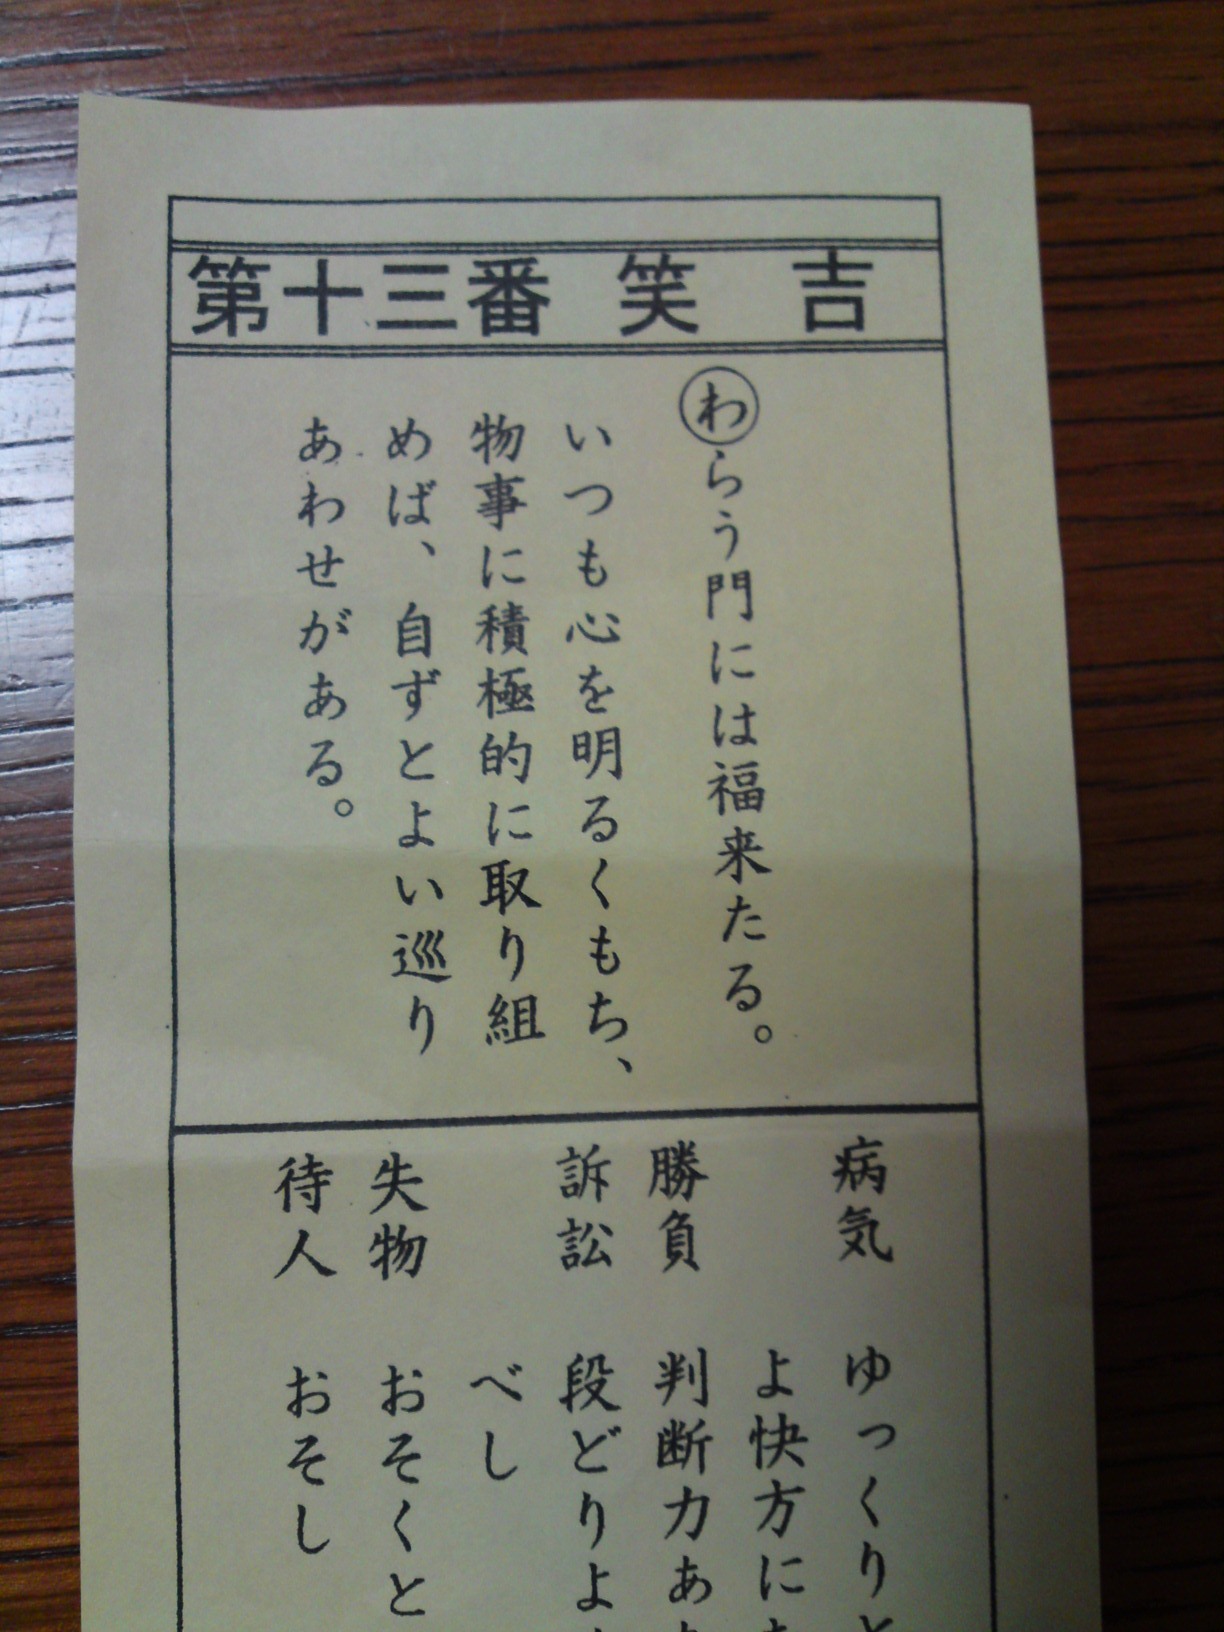 第十三番 笑 吉
わらう門には福来たる。
いつも心を明るくもち、
物事に積極的に取り組
めば、自ずとよい巡り
あわせがある。
病気 ゆっくりと
よ快方に
勝負 判断力あ
訴訟 段どりよ
べし
失物 おそくと
待人 おそし